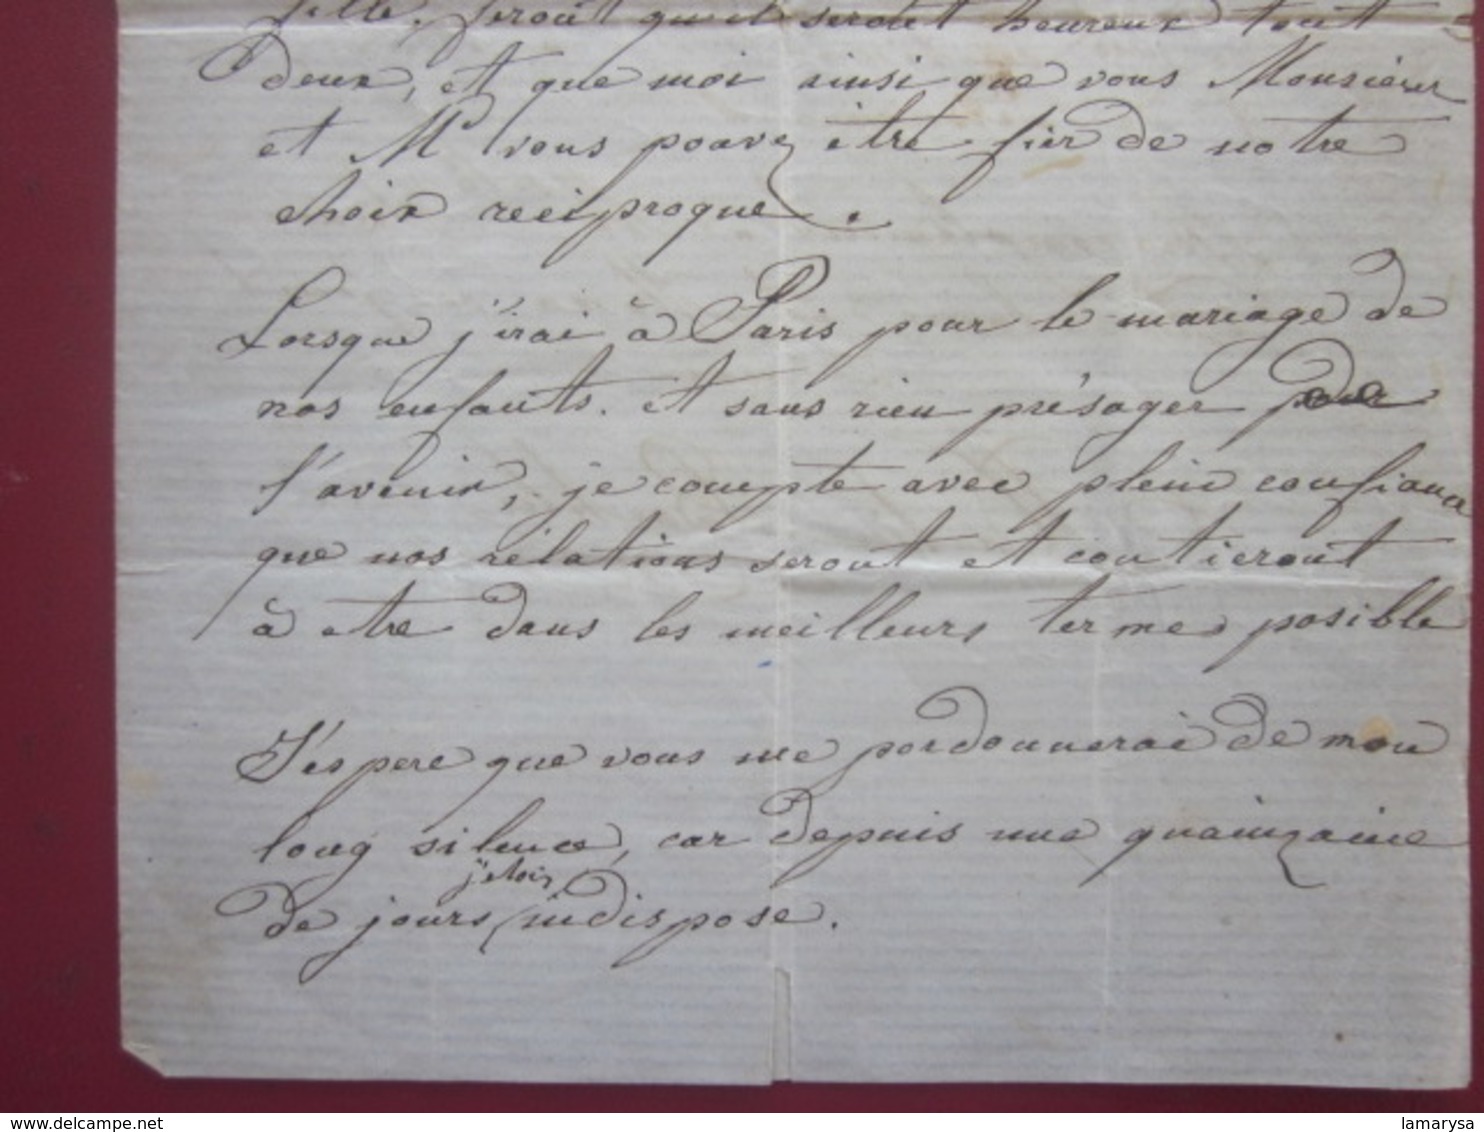 fille, seront qu'il seroit heureux tout
deux, et que moi ainsi que vous Monsieur
et Me vous pouvez être fier de notre
choix reciproque.
Lorsque j'irai à Paris pour le mariage de
nos enfants. et sans rien présager pour
l'avenir, je compte avec plein confiance
que nos rélations seront et contieront
à etre dans les meilleurs terme posible
J'espere que vous me pardonnerai de mon
long silence, car depuis une quainzaine
j'etois
de jours indispose.
delcampe.net
lamarysa